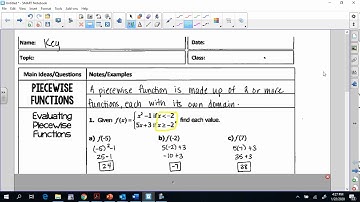 Untitled* - SMART Notebook
Name: Key
Date:
Topic:
Class:
Main Ideas/Questions
Notes/Examples
PIECEWISE
FUNCTIONS
A piecewise function is made up of 2 or more
functions, each with its own domain.
Evaluating
Piecewise
Functions
1. Given f(x) = { x² - 1 if x < -2
5x + 3 if x ≥ -2
find each value.
a) f(-5)
b) f(-2)
c) f(7)
(-5)² - 1
5(-2) + 3
5(7) + 3
25 - 1
-10 + 3
35 + 3
24
-7
38
4:27 PM